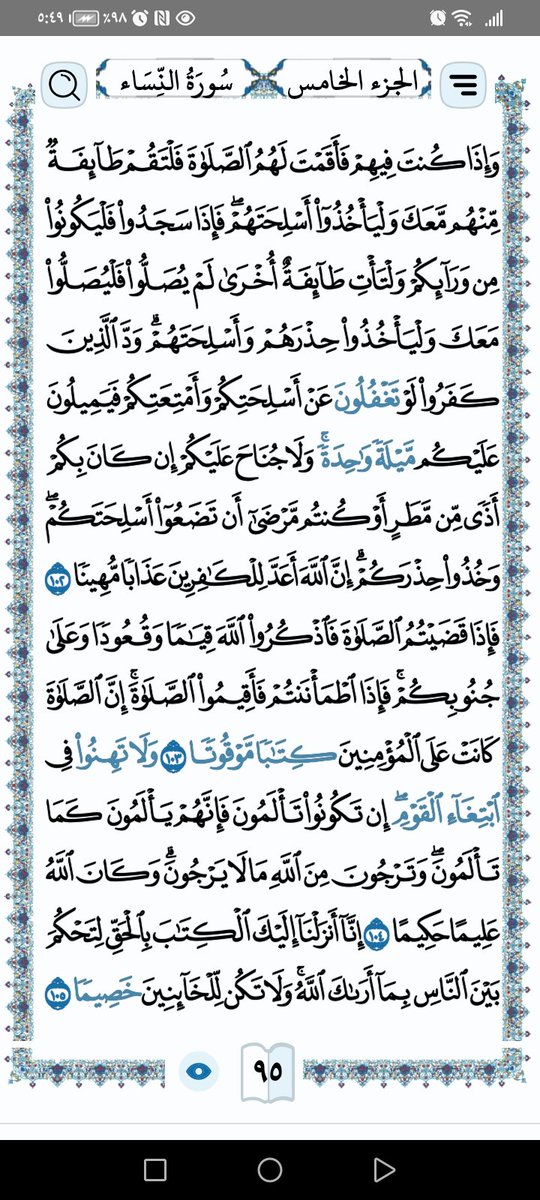 ٥:٤٩ ٪٩٨
الجزء الخامس سُورَةُ النِّسَاء
وَإِذَا كُنتَ فِيهِمۡ فَأَقَمۡتَ لَهُمُ ٱلصَّلَوٰةَ فَلۡتَقُمۡ طَآئِفَةٞ
مِّنۡهُم مَّعَكَ وَلۡيَأۡخُذُوٓاْ أَسۡلِحَتَهُمۡۖ فَإِذَا سَجَدُواْ فَلۡيَكُونُواْ
مِن وَرَآئِكُمۡ وَلۡتَأۡتِ طَآئِفَةٌ أُخۡرَىٰ لَمۡ يُصَلُّواْ فَلۡيُصَلُّواْ
مَعَكَ وَلۡيَأۡخُذُواْ حِذۡرَهُمۡ وَأَسۡلِحَتَهُمۡۗ وَدَّ ٱلَّذِينَ
كَفَرُواْ لَوۡ تَغۡفُلُونَ عَنۡ أَسۡلِحَتِكُمۡ وَأَمۡتِعَتِكُمۡ فَيَمِيلُونَ
عَلَيۡكُم مَّيۡلَةٗ وَٰحِدَةٗۚ وَلَا جُنَاحَ عَلَيۡكُمۡ إِن كَانَ بِكُمۡ
أَذٗى مِّن مَّطَرٍ أَوۡ كُنتُم مَّرۡضَىٰٓ أَن تَضَعُوٓاْ أَسۡلِحَتَكُمۡۖ
وَخُذُواْ حِذۡرَكُمۡۗ إِنَّ ٱللَّهَ أَعَدَّ لِلۡكَٰفِرِينَ عَذَابٗا مُّهِينٗا ١٠٢
فَإِذَا قَضَيۡتُمُ ٱلصَّلَوٰةَ فَٱذۡكُرُواْ ٱللَّهَ قِيَٰمٗا وَقُعُودٗا وَعَلَىٰ
جُنُوبِكُمۡۚ فَإِذَا ٱطۡمَأۡنَنتُمۡ فَأَقِيمُواْ ٱلصَّلَوٰةَۚ إِنَّ ٱلصَّلَوٰةَ
كَانَتۡ عَلَى ٱلۡمُؤۡمِنِينَ كِتَٰبٗا مَّوۡقُوتٗا ١٠٣ وَلَا تَهِنُواْ فِي
ٱبۡتِغَآءِ ٱلۡقَوۡمِۖ إِن تَكُونُواْ تَأۡلَمُونَ فَإِنَّهُمۡ يَأۡلَمُونَ كَمَا
تَأۡلَمُونَۖ وَتَرۡجُونَ مِنَ ٱللَّهِ مَا لَا يَرۡجُونَۗ وَكَانَ ٱللَّهُ
عَلِيمًا حَكِيمًا ١٠٤ إِنَّآ أَنزَلۡنَآ إِلَيۡكَ ٱلۡكِتَٰبَ بِٱلۡحَقِّ لِتَحۡكُمَ
بَيۡنَ ٱلنَّاسِ بِمَآ أَرَىٰكَ ٱللَّهُۚ وَلَا تَكُن لِّلۡخَآئِنِينَ خَصِيمٗا ١٠٥
٩٥